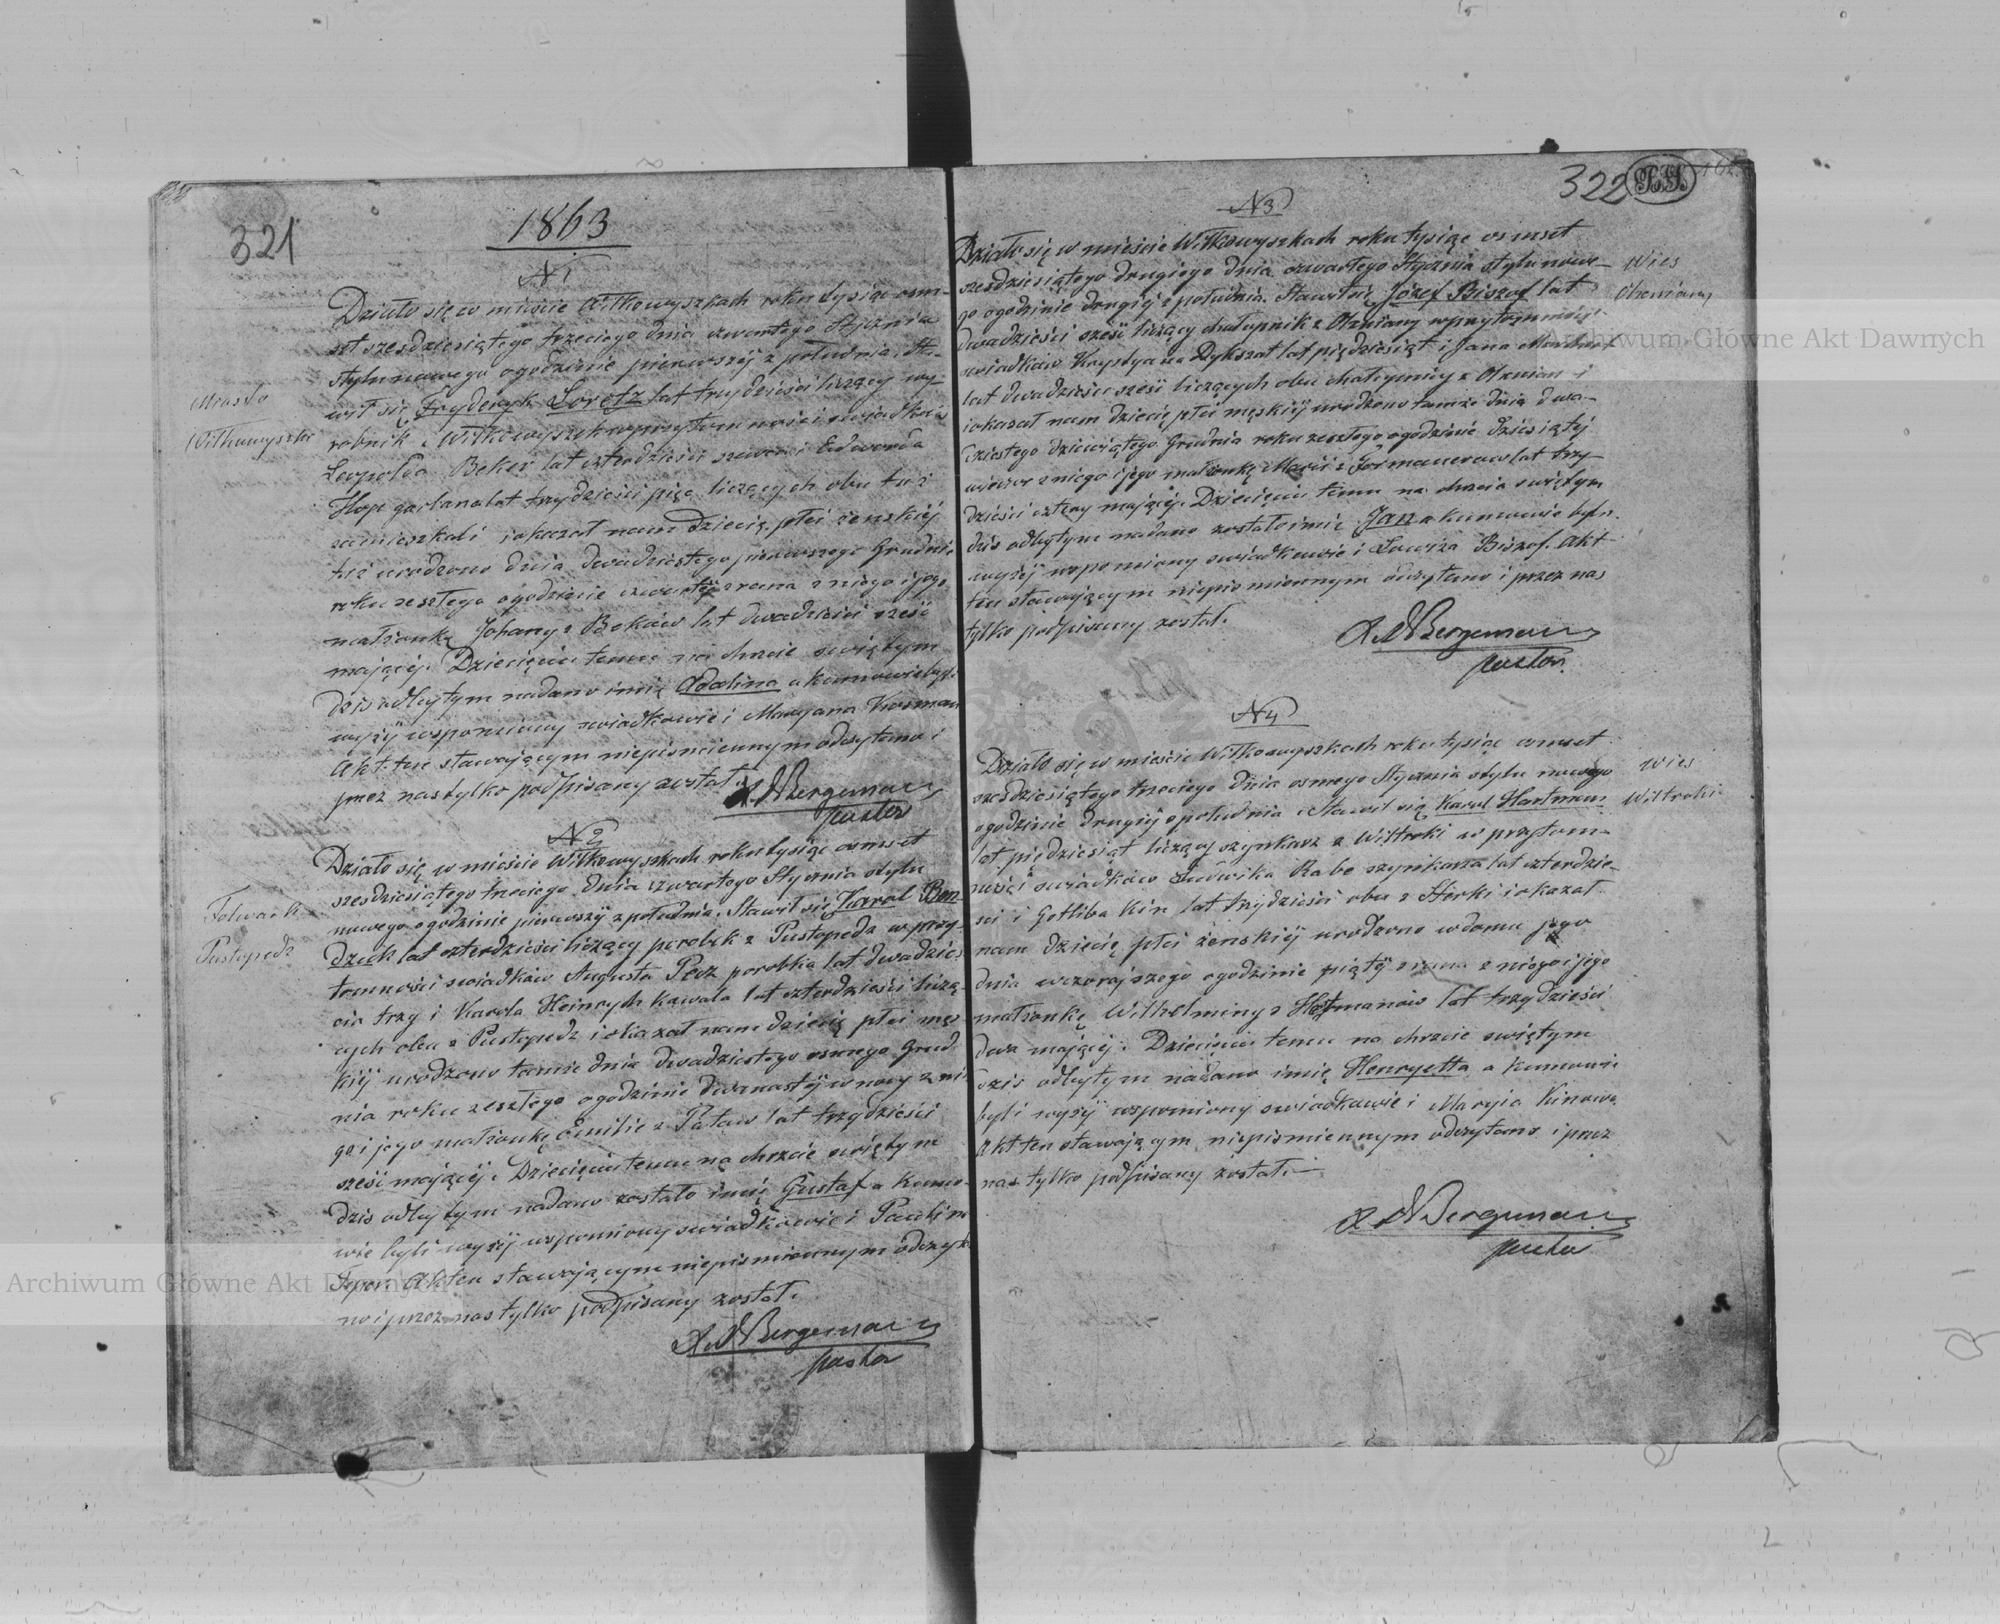 321
1863
N 1
Miasto
Wiłkowyszki
Działo się w mieście Wiłkowyszkach roku tysiąc osm-
set szesdziesiątego trzeciego dnia czwartego Stycznia
stylu nowego ogodzinie pierwszéj z południa. Sta-
wił się Fryderyk Loretz lat trzydzieści liczący wy-
robnik z Wiłkowyszek wprzytomności swiadków
Leopolda Beker lat czterdzieści szewc i Edwarda
Hop garlana lat trzydzieści pięc liczących obu tu
zamieszkali i okazał nam dziecię płci żenskiéj
tu urodzone dnia dwadziestego pierwszego Grudnia
roku zeszłego ogodzinie czwartéj zrana z niego i jego
małżonki Johany z Beków lat dwadzieści sześć
mającéj. Dziecięciu temu na chrzcie swiętym
dzis odbytym nadano imię Adolina a kumowie byli
wyżéj wspomniony swiadkowie i Maryana Kosman
Akt ten stawającym niepismiennym odczytano i
przez nas tylko podpisany został.
Bergeman
pastor
N 2
Folwark
Pustopedź
Działo się w mieście Wiłkowyszkach roku tysiąc osmset
szesdziesiątego trzeciego dnia czwartego Stycznia stylu
nowego ogodzinie pierwszéj z południa. Stawił się Karol Ben-
dzuk lat czterdzieści liczący parobek z Pustopedz w przy-
tomności swiadków Augusta Pecz parobka lat dwadzies-
cia trzy i Karola Heinrych kawala lat czterdzieści liczą-
cych obu z Pustopedz i okazał nam dziecię płci męs-
kiéj urodzone tamże dnia dwadziestego osmego Grud-
nia roku zeszłego ogodzinie dwanastéj w nocy z nie-
go i jego małżonki Emilie z Pataw lat trzydzieści
sześć mającéj. Dziecięciu temu na chrzcie swiętym
dzis odbytym nadano zostało imię Gustaf a kumo-
wie byli wyżéj wspomniony swiadkowie i Paulina
Akt ten stawającym niepismiennym odczyta-
no i przez nas tylko podpisany został.
Bergeman
pastor
322
N3
Wies
Działo się w mieście Wiłkowyszkach roku tysiąc osmset
szesdziesiątego drugiego dnia czwartego Stycznia stylu nowe-
go ogodzinie drugiéj z południa. Stawił się Józef Biszof lat
dwadzieści sześć liczący chałupnik z Olxniany wprzytomności
swiadków Krystyana Dykszat lat pięćdziesiąt i Jana
lat dwadzieścia sześć liczących obu chałupnicy z Olxnian i
iokazał nam dziecię płci męskiéj urodzone tamże dnia dwa-
dziestego dziewiątego Grudnia roku zeszłego ogodzinie dziesiątéj
wieczor z niego i jego małżonki Maryi z lat trzy-
dzieści cztery mającéj. Dziecięciu temu na chrzcie swiętym
dzis odbytym nadano zostało imię Jan a kumowie byli
wyżéj wspomniony swiadkowie i Lowiza Biszof. Akt
ten stawającym niepismiennym odczytano i przez nas
tylko podpisany został.
Bergeman
pastor.
N4
Wies
Wiłtroki
Działo się w mieście Wiłkowyszkach roku tysiąc osmset
szesdziesiątego trzeciego dnia osmego Stycznia stylu nowego
ogodzinie drugiéj z południa. Stawił się Karol Hartman
lat pięćdziesiąt liczący szynkarz z Wiłtroki w przytom-
ności swiadków Ludwika Rabe szynkarza lat czterdzie-
sci i Gotliba Kin lat trzydzieści obu z i okazał
nam dziecię płci żenskiéj urodzone w domu jego
dnia wczorajszego ogodzinie piątéj z rana z niego i jego
małżonki Wilhelminy z Hofmanów lat trzydzieści
dwa mającéj. Dziecięciu temu na chrzcie swiętym
dzis odbytym nadano imię Henryetta a kumowie
byli wyżéj wspomniony swiadkowie i Maryia Kinowa
Akt ten stawającym niepismiennym odczytano i przez
nas tylko podpisany został.
Bergeman
pastor
Archiwum Główne Akt Dawnych
Archiwum Główne Akt Dawnych